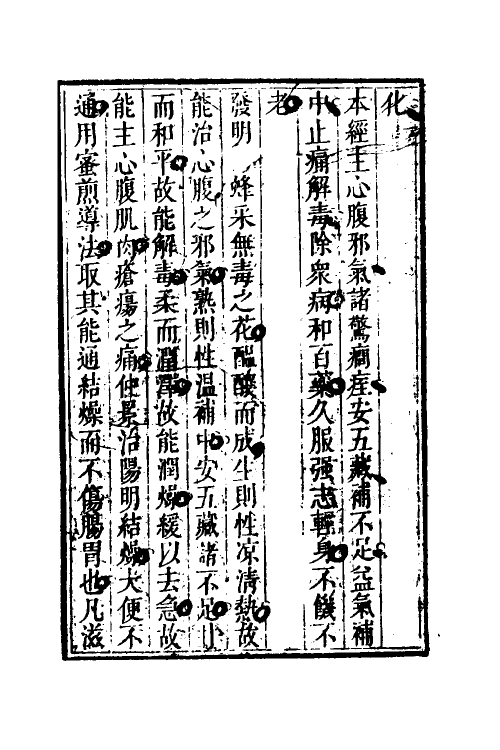 化
本經主心腹邪氣諸驚癇痓安五藏補不足益氣補
中止痛解毒除衆病和百藥久服强志輕身不饑不
老
發明 蜂采無毒之花醞釀而成生則性凉清熱故
能治心腹之邪氣熟則性温補中安五藏諸不足小
而和平故能解毒柔而潤澤故能潤燥緩以去急故
能主心腹肌肉瘡瘍之痛仲景治陽明結燥大便不
通用蜜煎導法取其能通結燥而不傷腸胃也凡滋